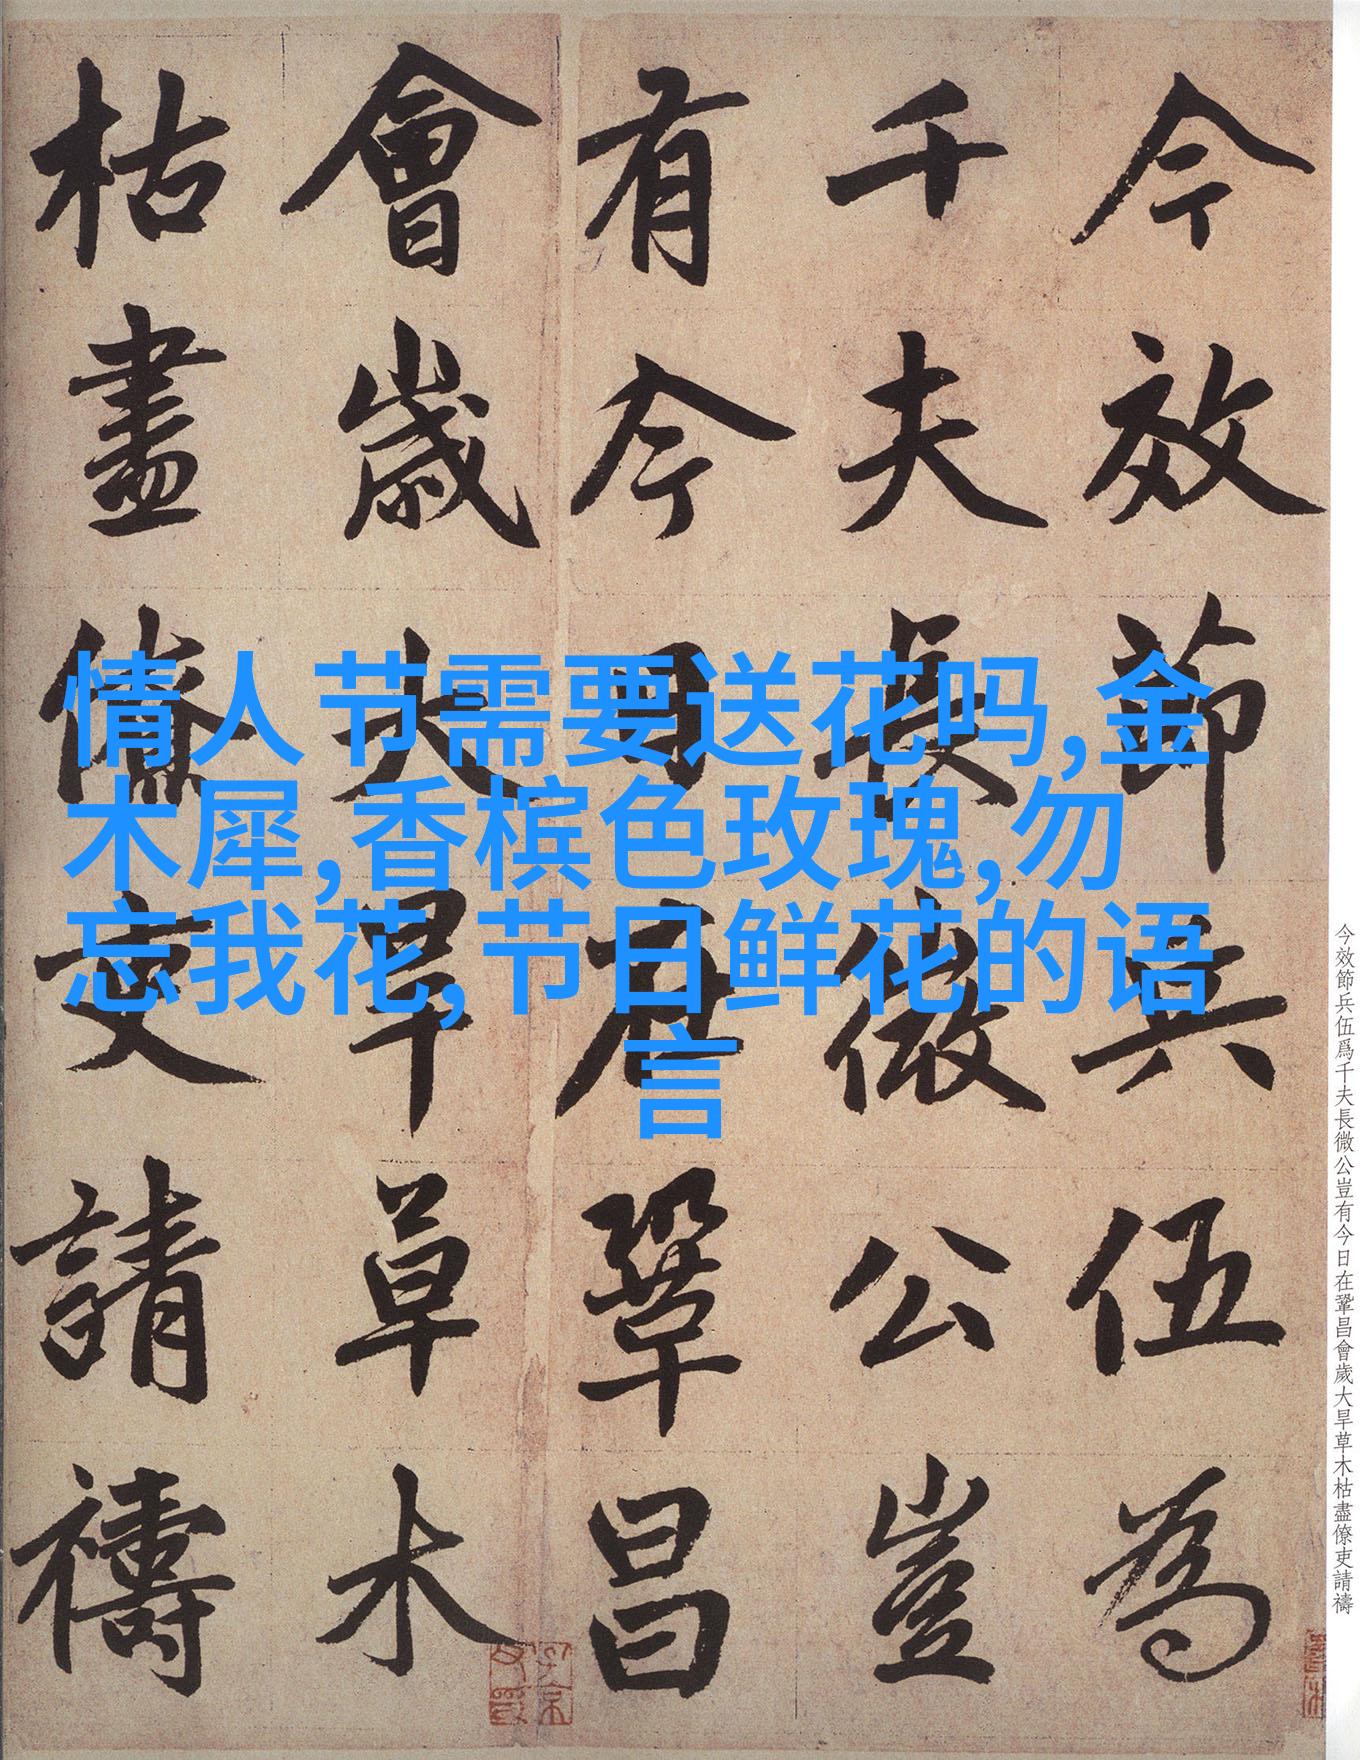 今效節兵伍為
千夫長微公豈
有今日在鞏昌
會歲大旱草木
枯盡僚吏請禱
情人节需要送花吗,金
木犀,香槟色玫瑰,勿
忘我花,节日鲜花的语
言
今效節兵伍爲千夫長微公豈有今日在鞏昌會歲大旱草木枯盡僚吏請禱